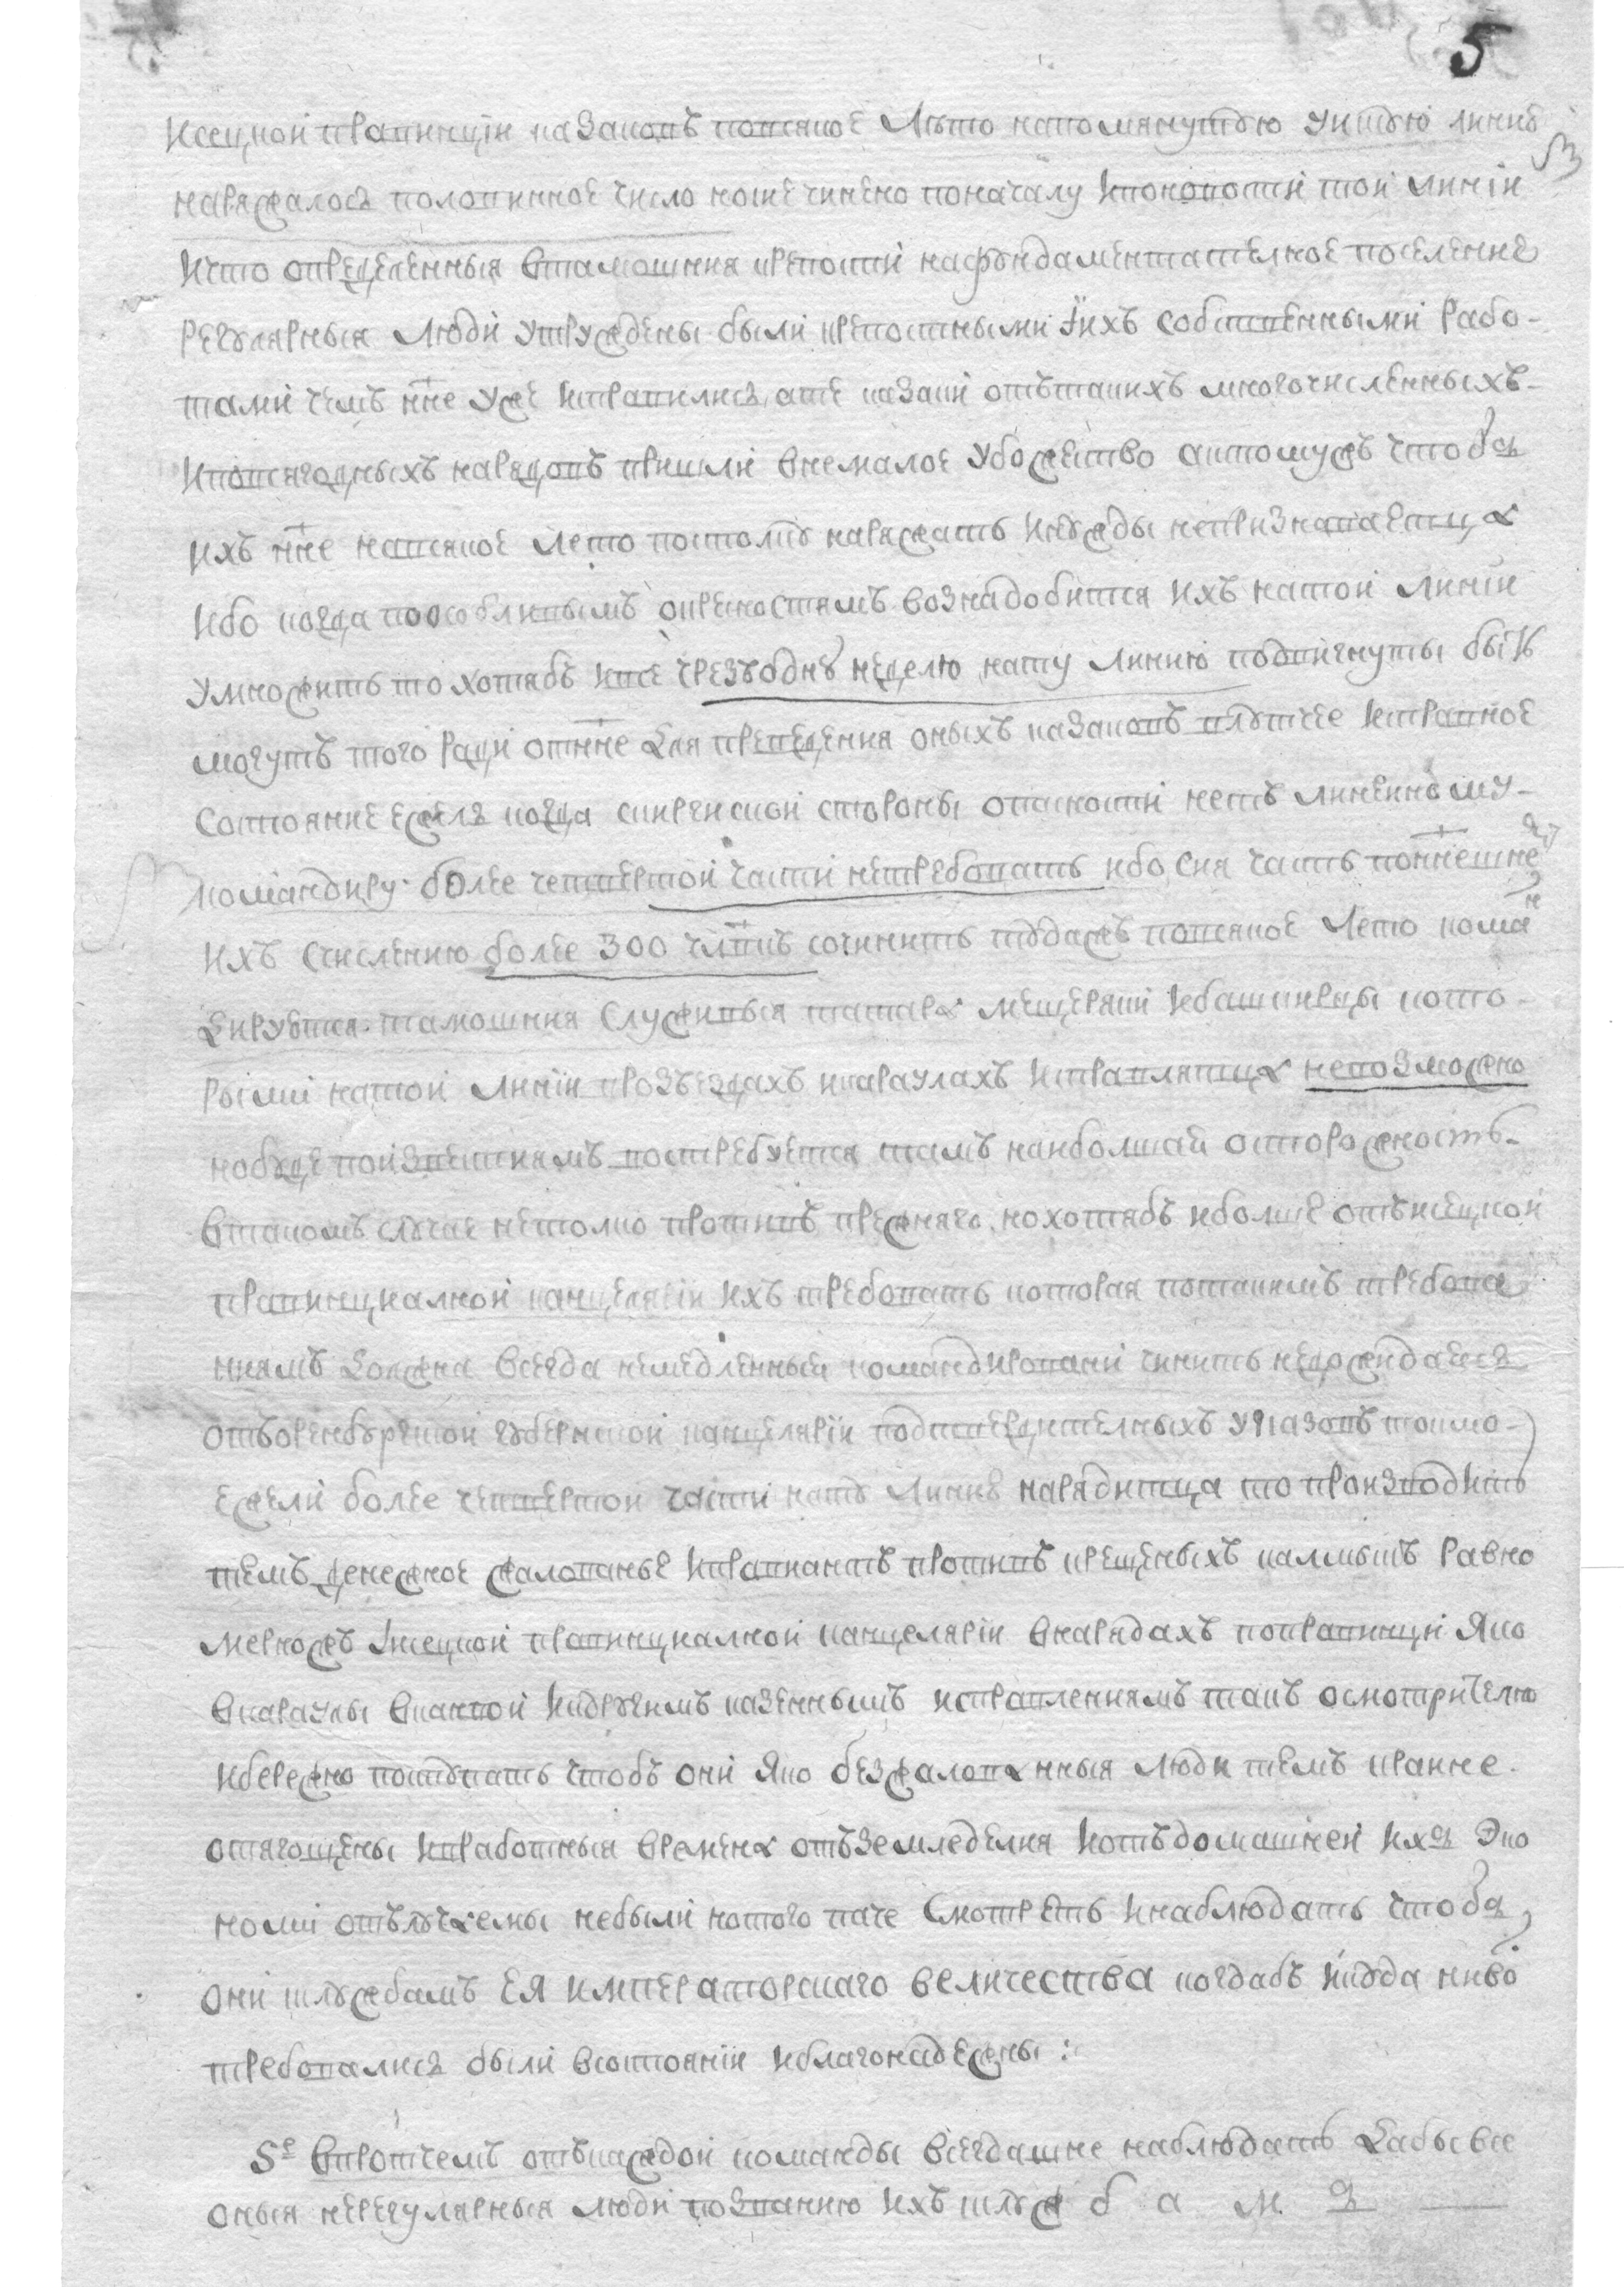 5
Исецкой правинцїи казаковъ повсякое лѣто напомянутую уйскую линию
наряжалось половинное число ноше чинено поначалу ипоновости той линїи
ичто определенныя втамошния крепости нафундаментателное поселение
регулярныя люди утруждены были крепостными їихъ собственными рабо-
тами чемъ нне уже исправились, ате казаки отътакихъ многочисленныхъ
иповсягодныхъ нарядовъ пришли внемалое убожество актомужъ чтобъ
ихъ нне навсякое лето потому наряжать инужды непризнаваетца
ибо когда поособливымъ окресностямъ вознадобится ихъ натой линїи
умножить то хотябъ ивсе чрезъодну неделю нату линию подвигнуты быть
могутъ того ради отнне для приведения оныхъ казаковъ влутчее исправное
состояние ежель когда скиргиской стороны опасности нетъ линейному
командиру более четвертой части нетребовать ибо сия часть понынешне
ихъ счислению более 300 члвкъ сочинить тудажъ повсякое лето кома н
дируется тамошния служивыя татара мещеряки ибашкирцы кото-
рыми натой линїи вразъездахъ икараулахъ исправлятца невозможно
нобуде поизвестиямъ востребуется тамъ наиболшая осторожность
втакомъ случае нетолко противъ прежняго, нохотябъ иболше отъисецкой
правинциалной канцелярїи ихъ требовать которая потакимъ требова
ниямъ должна всегда немедленныя командировани чинить недожидаясь
отъоренбургской губернской канцелярїи подтвердителныхъ указовъ токмо
ежели более четвертой части нату линию нарядитца то производить
темъ денежное жалованье иправиантъ противъ крещеныхъ калмыкъ равно
мерножъ исецкой правинциалной канцелярїи внарядахъ поправинци яко
вкараулы вканвои икдругимъ казеннымъ исправлениямъ такъ осмотрително
ибережно поступать чтобъ они яко безжалованныя люди темъ крайне
отягощены ивработныя времена отъземледелия иотъдомашней ихъ эко
номи отълучаемы небыли нотого паче смотреть инаблюдать чтобъ
они кслужбамъ ея императорскаго величества когдабъ икуда ниво
требовались были всостоянїи иблагонадежны:
Ѕе Впротчемъ откаждой команды всегдашне наблюдать дабы все
оныя нерегулярныя люди позванию ихъ кслужбамъ